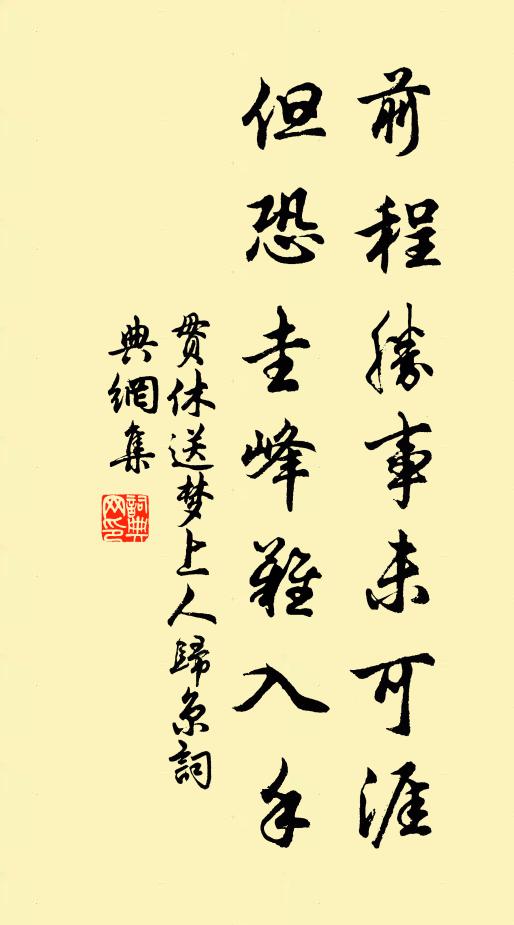 前程勝事未可涯
但恐圭峰難入手
貫休送梦上人歸京詞
典網集
詞典网印